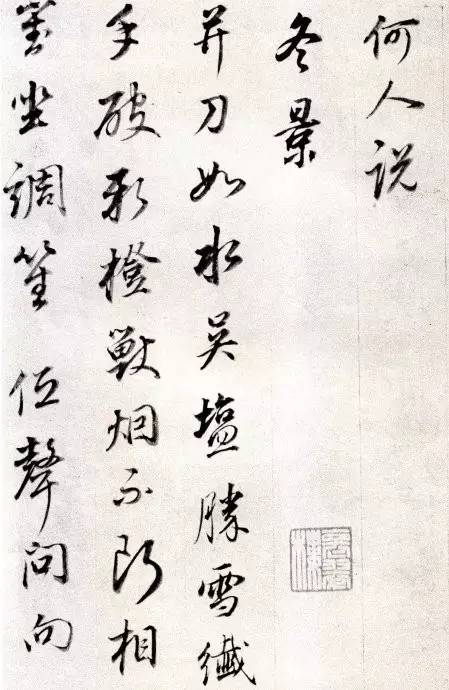 何人说
冬景
并刀如水吴塩勝雪纖
手破新橙獸烟不断相
對坐調笙低聲问向